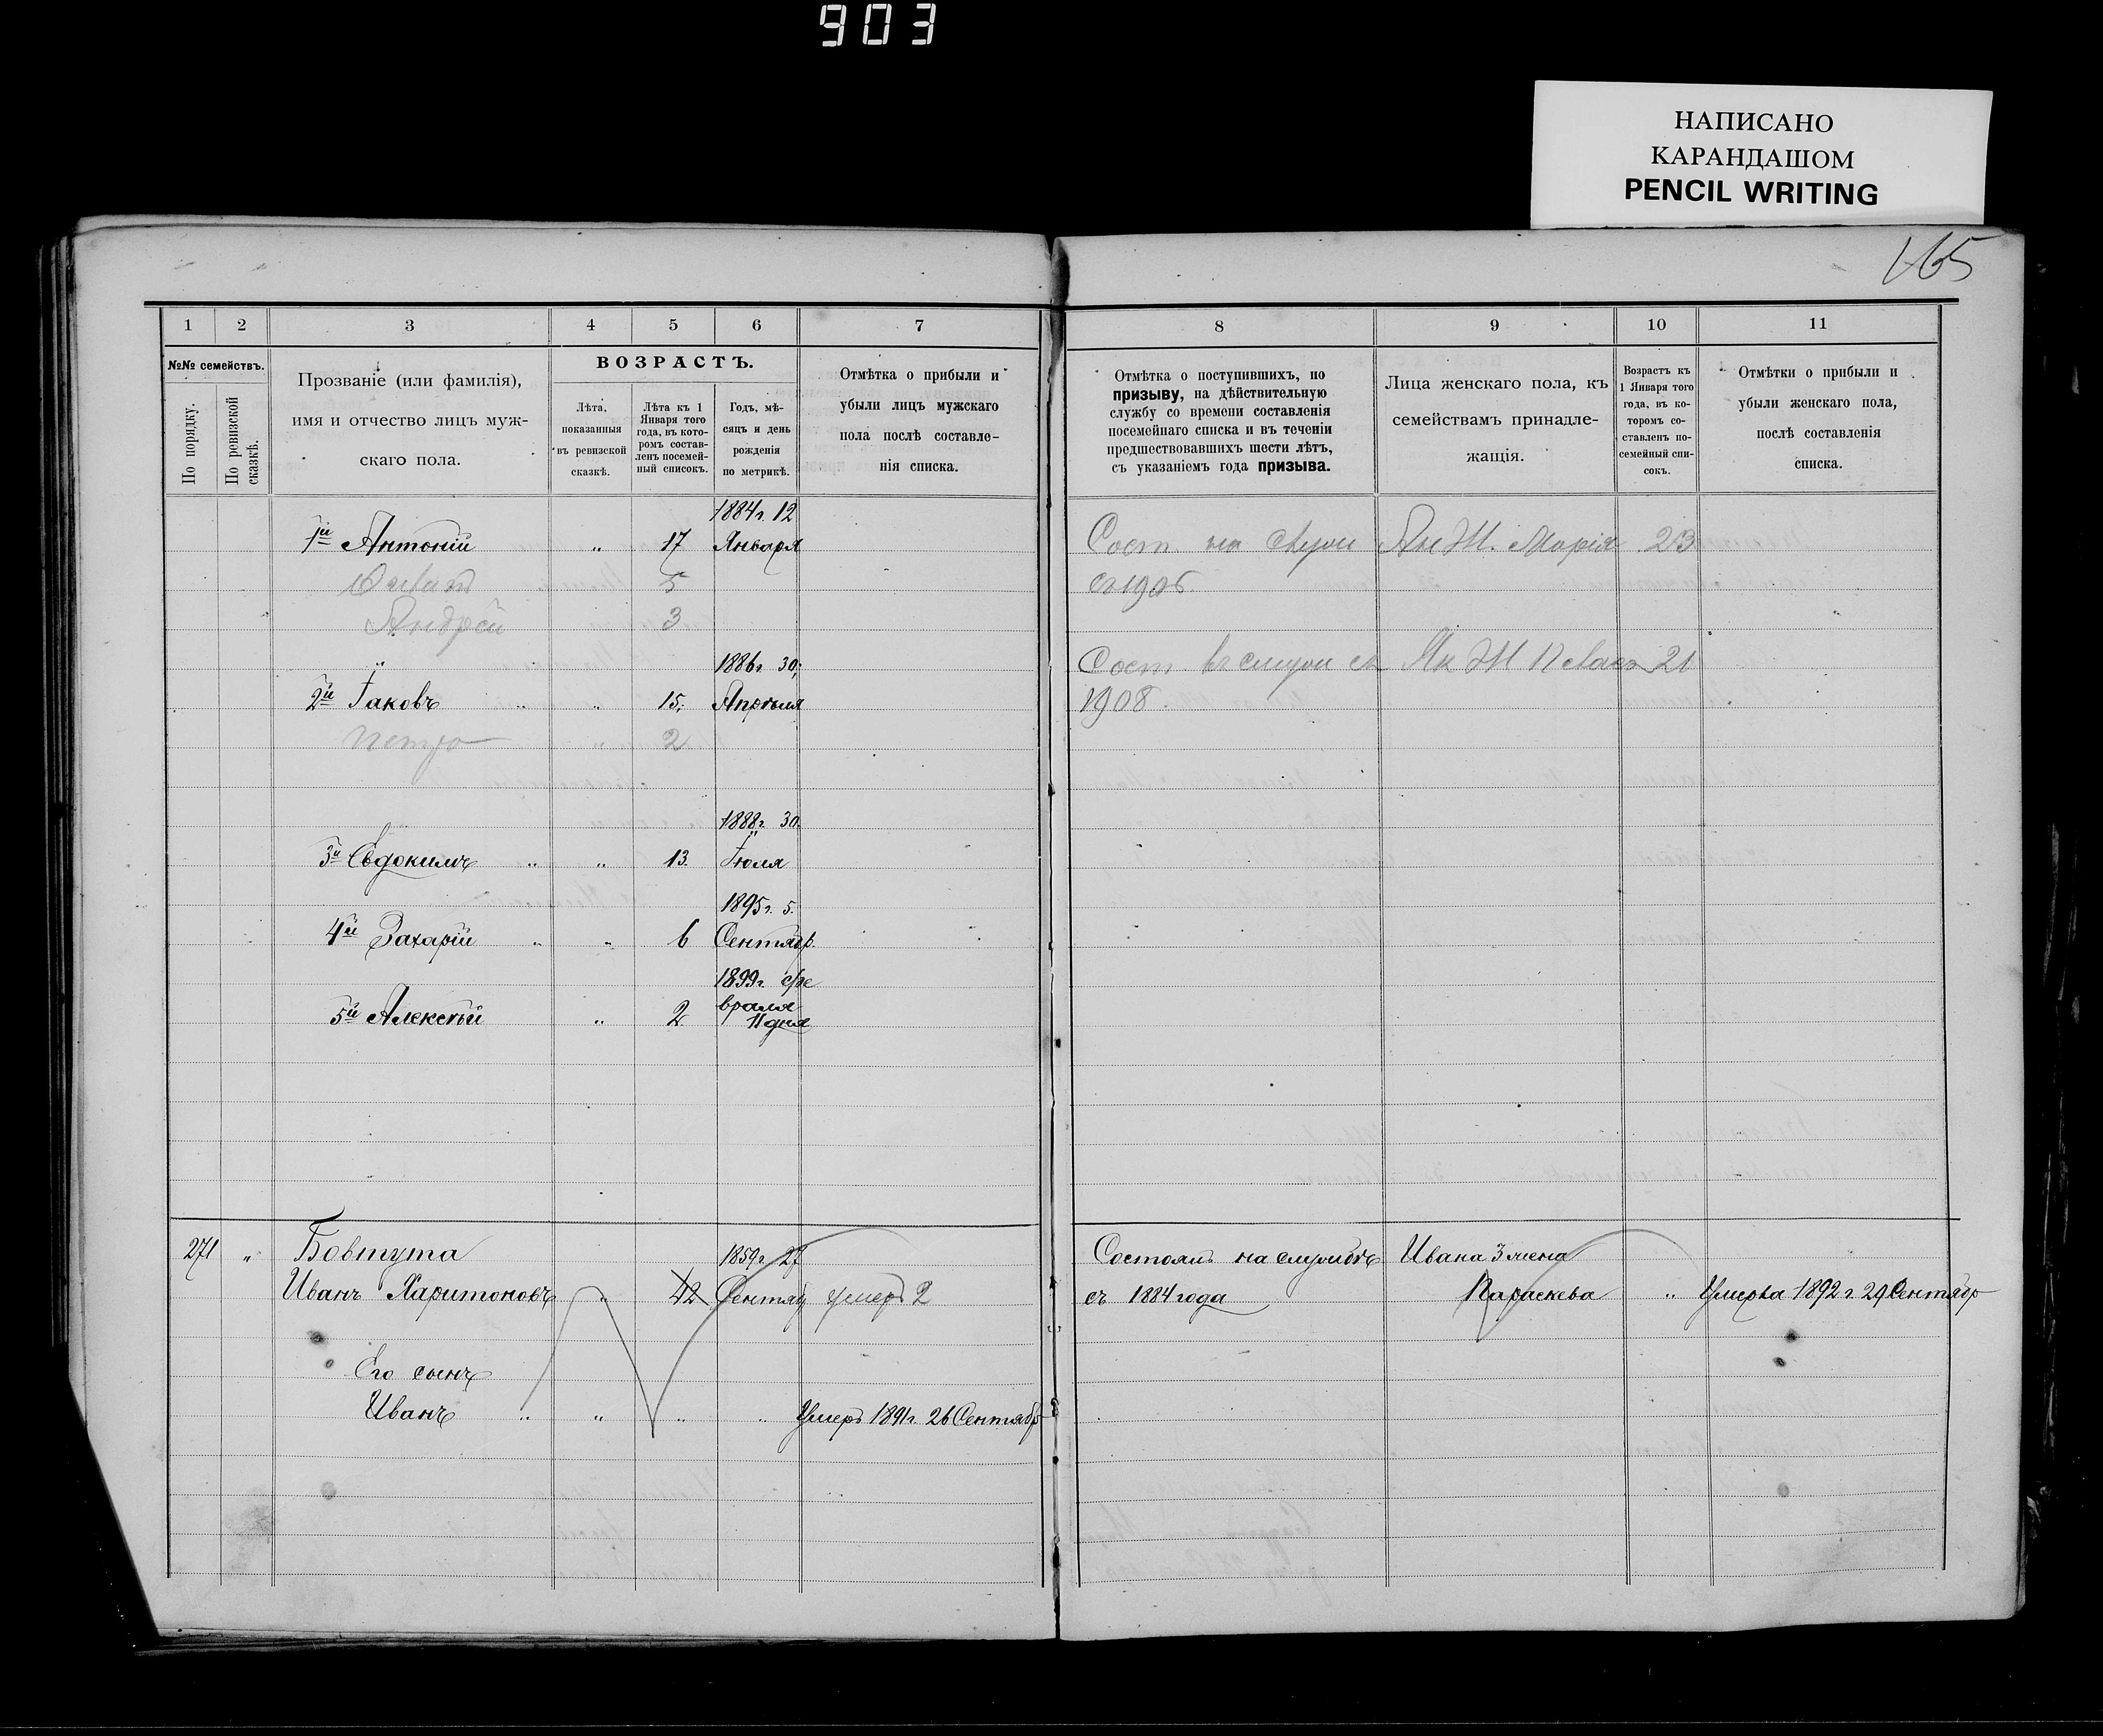 903
НАПИСАНО
КАРАНДАШОМ
PENCIL WRITING
165
1 2 3 4 5 6 7 8 9 10 11
№№ семействъ.
По порядку.
По ревизской сказкѣ.
Прозваніе (или фамилія),
имя и отчество лицъ муж-
скаго пола.
ВОЗРАСТЪ.
Лѣта,
показанныя
въ ревизской
сказкѣ.
Лѣта къ 1
Января того
года, въ кото-
ромъ состав-
ленъ посемей-
ный списокъ.
Годъ, мѣ-
сяцъ и день
рожденія
по метрикѣ.
Отмѣтка о прибыли и
убыли лицъ мужскаго
пола послѣ составле-
нія списка.
Отмѣтка о поступившихъ, по
призыву, на дѣйствительную
службу со времени составленія
посемейнаго списка и въ теченіи
предшествовавшихъ шести лѣтъ,
съ указаніемъ года призыва.
Лица женскаго пола, къ
семействамъ принадле-
жащія.
Возрастъ къ
1 Января того
года, въ ко-
торомъ со-
ставленъ по-
семейный спи-
сокъ.
Отмѣтки о прибыли и
убыли женскаго пола,
послѣ составленія
списка.
1884 г. 12
1й Антоній " 17 Января Сост. на Ан Ж. Марія 23
5
Андрей 3
1886 г. 30
2й Іаковъ " " 15. Апрѣля Сост Як Ж 21
1908.
Петро " 2
1888 г. 30.
3й Евдокимъ " " 13. Іюля
1895 г. 5.
4й Захарій " " 6 Сентябр.
1899 г. фе
враля
5й Алексѣй " 2 11 дня
271 " Бовтута 1859 г. 27 Состоялъ на службѣ Ивана жена
Иванъ Харитоновъ " 42 Сентяб умеръ 2 съ 1884 года Параскева " Умерла 1892 г. 29 Сентябр
Его сынъ
Иванъ " " " " Умеръ 1891 г. 26 Сентябр